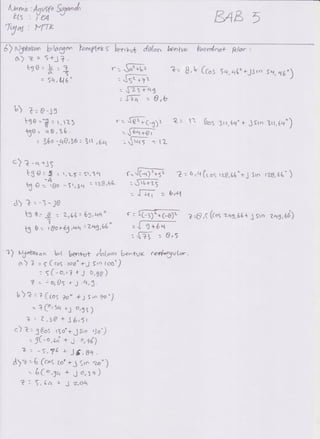 Nama : Agustse Sugandi
Kls : 1 EA
Tugas : MTK
BAB 5
6) Nyatakan bilangan kompleks berikut dalam bentuk koordinat Polar :
a) z = 5+j7.
tg θ = b/a = 7/5
= 54,46°
r = √a²+b²
= √5²+7²
= √25+49
= √74 = 8,6
z = 8,6 (cos 54,46°+jsin 54,46°)
b) z = 8-j9
tgθ = 9/8 = 1,125
tgθ = 48,36
= 360-48,36 = 311,64
r = √8²+(-9)²
= √64+81
= √145 = 12
z = 12 (cos 311,64° + jsin 311,64°)
c) z = -4+j5
tg θ = 5/-4 = 1,25 = 51,34
tg θ = 180 - 51,34 = 128,66
r = √(-4)²+5²
= √16+25
= √41 = 6,4
z = 6,4 (cos 128,66°+j sin 128,66°)
d) z = -3-j8
tg θ = 8/3 = 2,66 = 69,44°
tg θ = 180+69,44 = 249,66°
r = √(-3)²+(-8)²
= √9+64
= √73 = 8,5
z = 8,5 (cos 249,66 + j sin 249,66)
7) Nyatakan bil berikut dalam bentuk rectangular.
a) z = 5 (cos 100° + j sin 100°)
= 5 (-0,17 + j 0,98)
z = -0,85 + j 4,9
b) z = 7 (cos 70° + j sin 70°)
= 7 (0,34 + j 0,93)
z = 2,38 + j 6,51